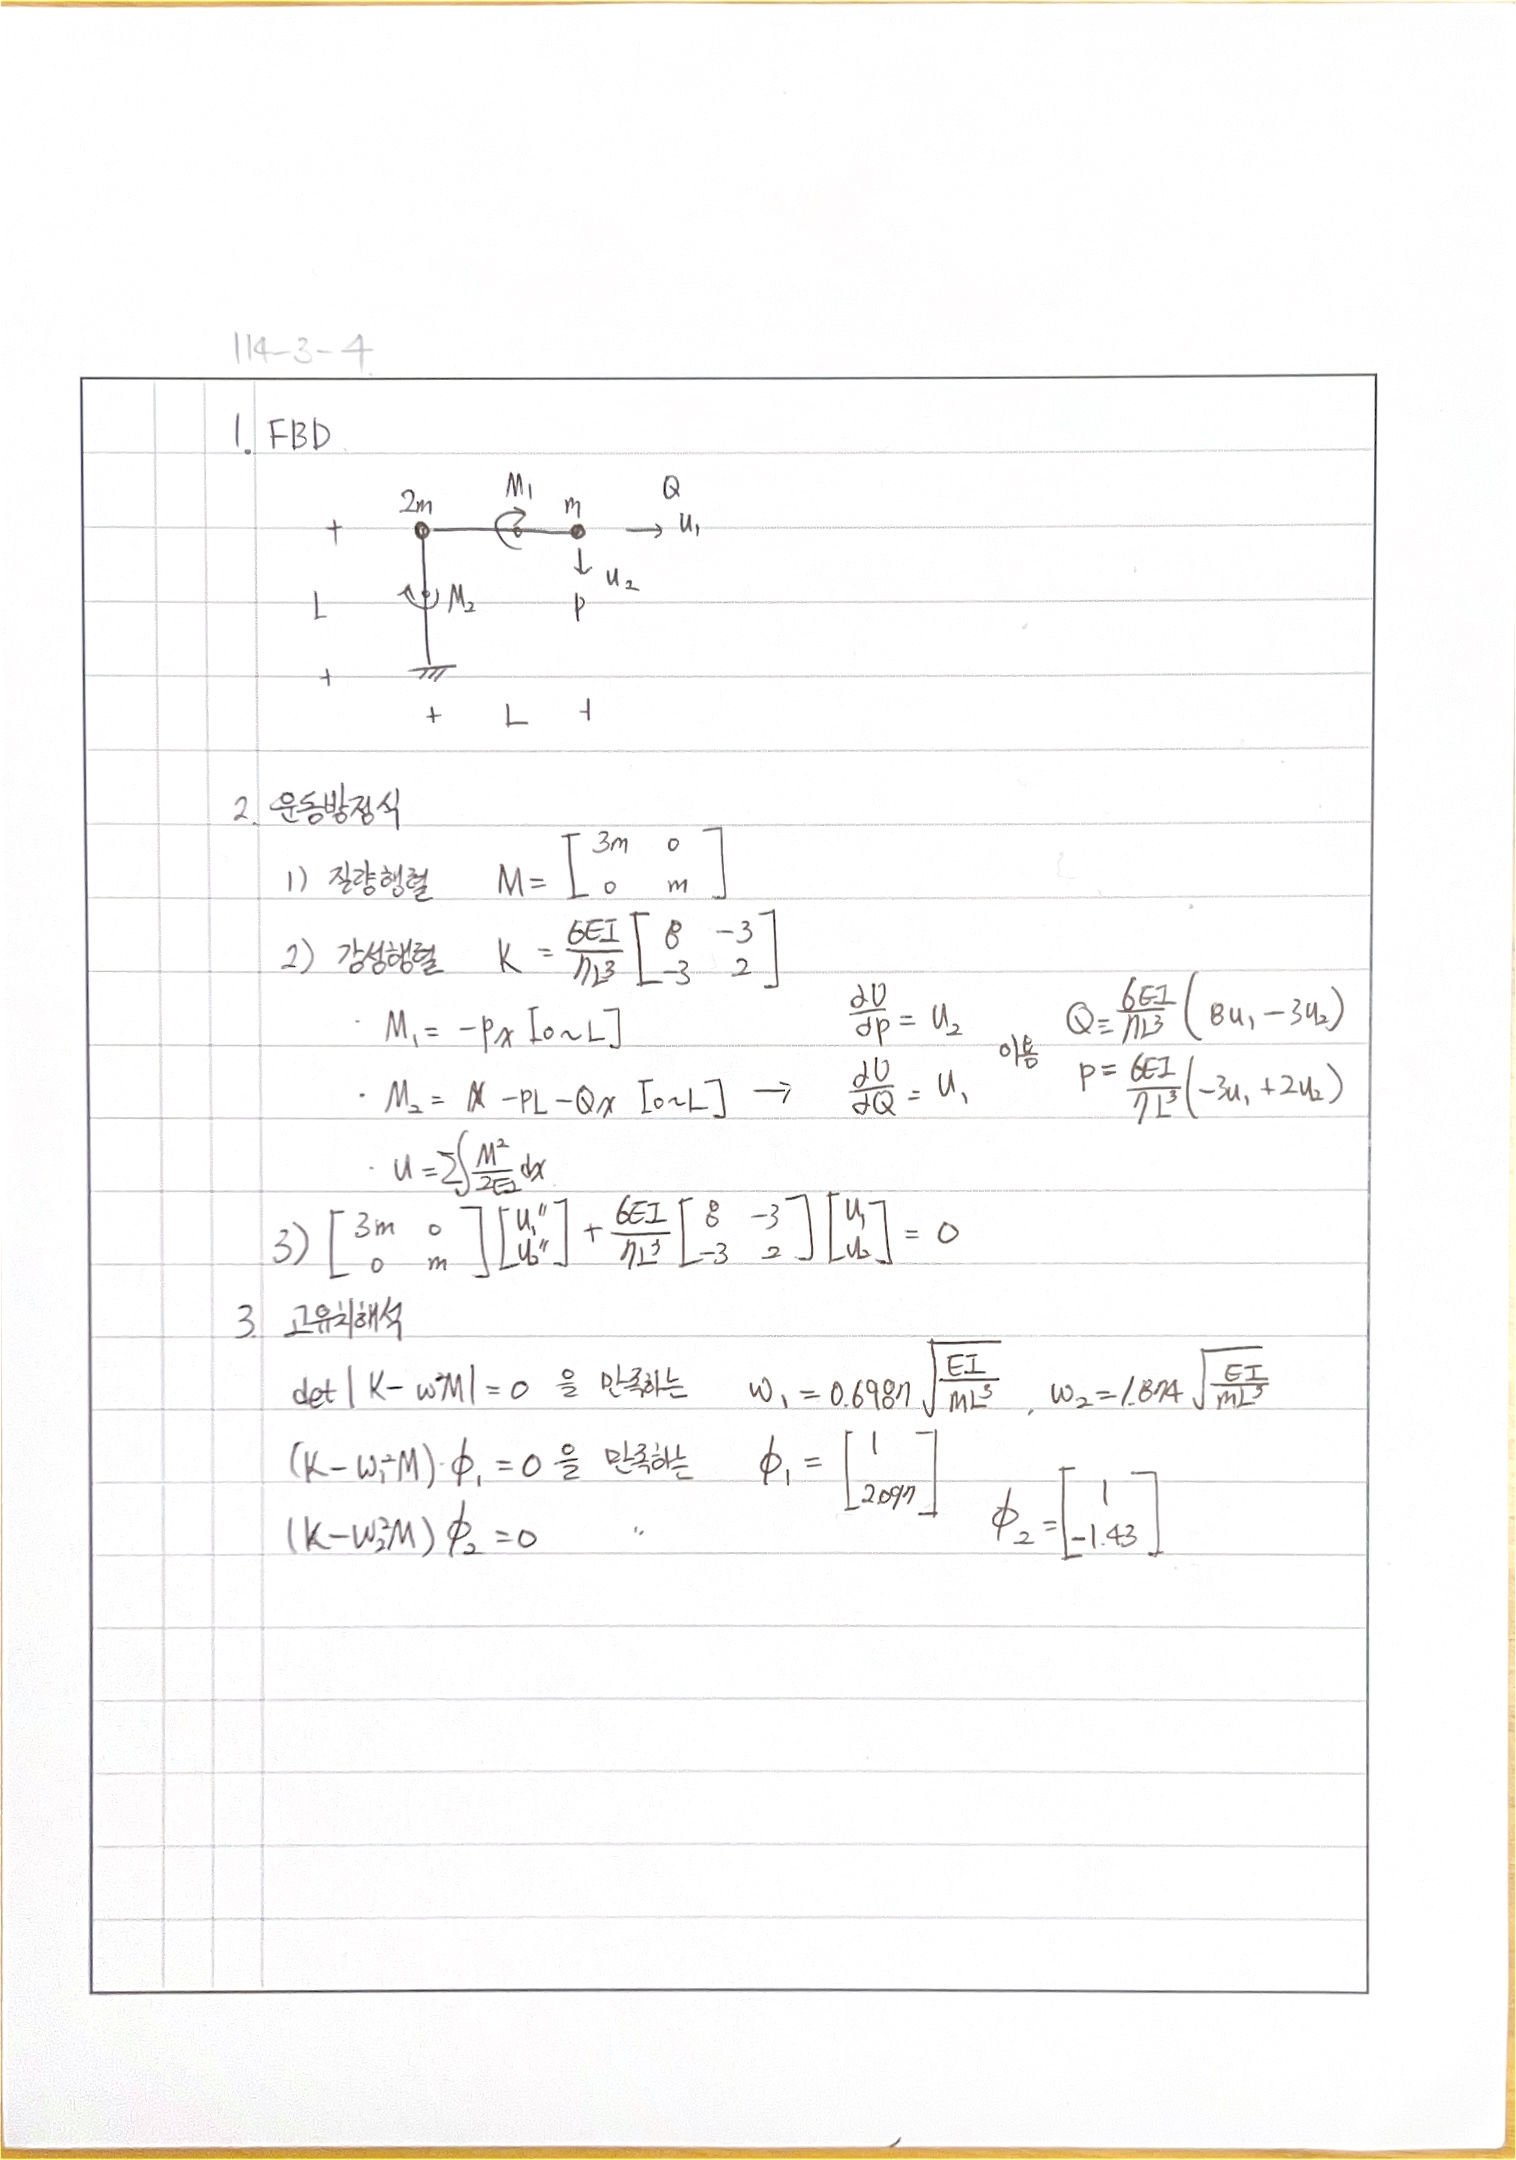 114-3-4
1. FBD
2m M₁ m Q
+ → u₁
↓ u₂
L M₂ P
+
+ L +
2. 운동방정식
1) 질량행렬 M = [3m 0; 0 m]
2) 강성행렬 K = 6EI/7L³ [8 -3; -3 2]
· M₁ = -Px [0~L] ∂U/∂P = u₂ 이용 Q = 6EI/7L³ (8u₁ - 3u₂)
· M₂ = -PL - Qx [0~L] → ∂U/∂Q = u₁ P = 6EI/7L³ (-3u₁ + 2u₂)
· U = Σ∫ M²/2EI dx
3) [3m 0; 0 m] [u₁″; u₂″] + 6EI/7L³ [8 -3; -3 2] [u₁; u₂] = 0
3. 고유치해석
det | K - ω²M | = 0 을 만족하는 ω₁ = 0.6987 √(EI/mL³), ω₂ = 1.874 √(EI/mL³)
(K - ω₁²M)·φ₁ = 0 을 만족하는 φ₁ = [1; 2.097]
(K - ω₂²M) φ₂ = 0 〃 φ₂ = [1; -1.43]